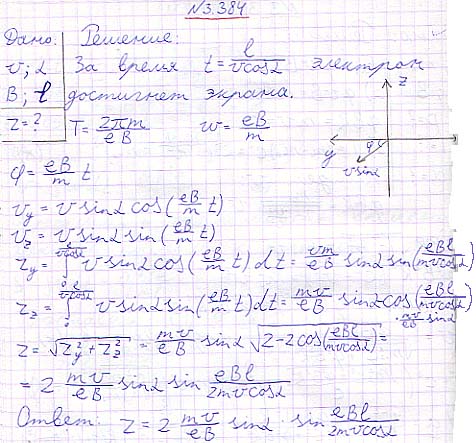 №3.384
Дано: Решение:
v; α За время t = l/(v cosα) электрон
B; l достигнет экрана.
Z = ? T = 2πm/(eB) w = eB/m
z
y φ
v sinα
φ = eB/m t
v_y = v sinα cos(eB/m t)
v_z = v sinα sin(eB/m t)
z_y = ∫₀^(l/(v cosα)) v sinα cos(eB/m t) dt = vm/(eB) sinα sin(eBl/(mv cosα))
z_z = ∫₀^(l/(v cosα)) v sinα sin(eB/m t) dt = mv/(eB) sinα cos(eBl/(mv cosα))
· mv/(eB) sinα
Z = √(z_y² + z_z²) = mv/(eB) sinα √(2-2cos(eBl/(mv cosα))) =
= 2 mv/(eB) sinα sin eBl/(2mv cosα)
Ответ: Z = 2 mv/(eB) sinα · sin eBl/(2mv cosα)